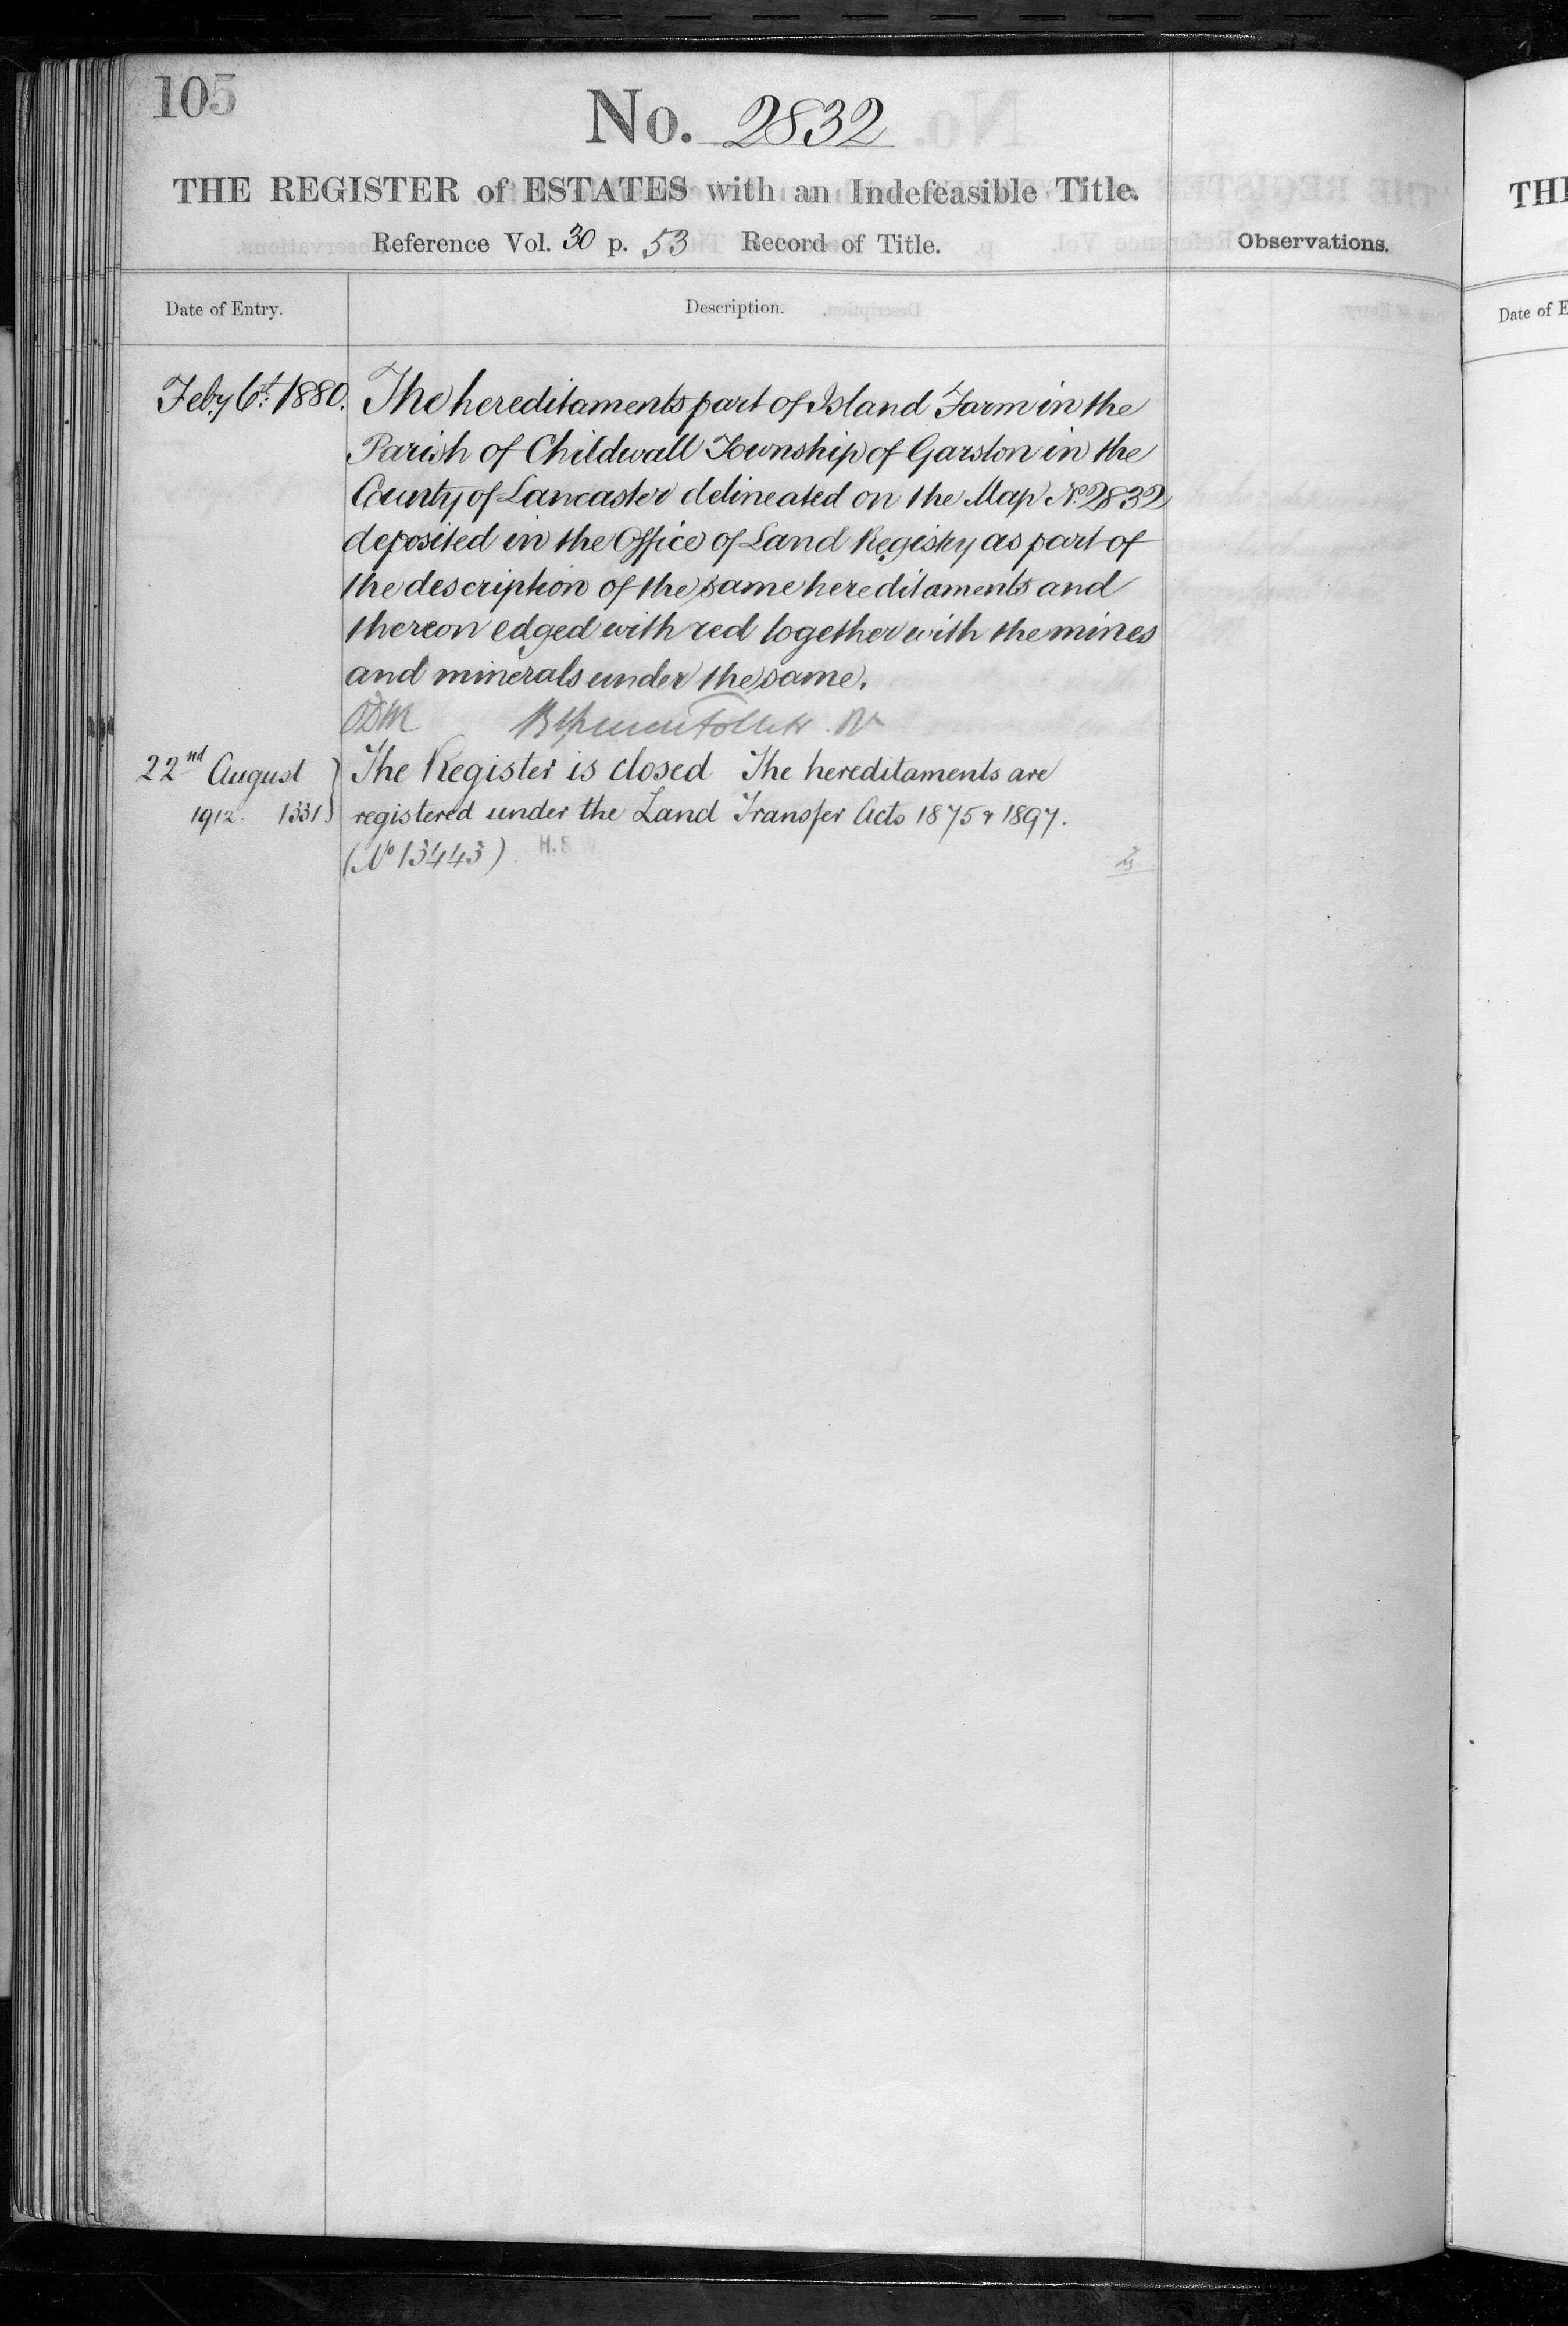 105
No. 2832
THE REGISTER of ESTATES with an Indefeasible Title.
Reference Vol. 30 p. 53 Record of Title.
Observations.
Date of Entry.
Description.
Feby 6th: 1880.
The hereditaments part of Island Farm in the
Parish of Childwall Township of Garston in the
County of Lancaster delineated on the Map No. 2832
deposited in the Office of Land Registry as part of
the description of the same hereditaments and
thereon edged with red together with the mines
and minerals under the same.
22nd August
1912. 1331.
The Register is closed The hereditaments are
registered under the Land Transfer Acts 1875 & 1897.
(No 13443)
TH
Date of E